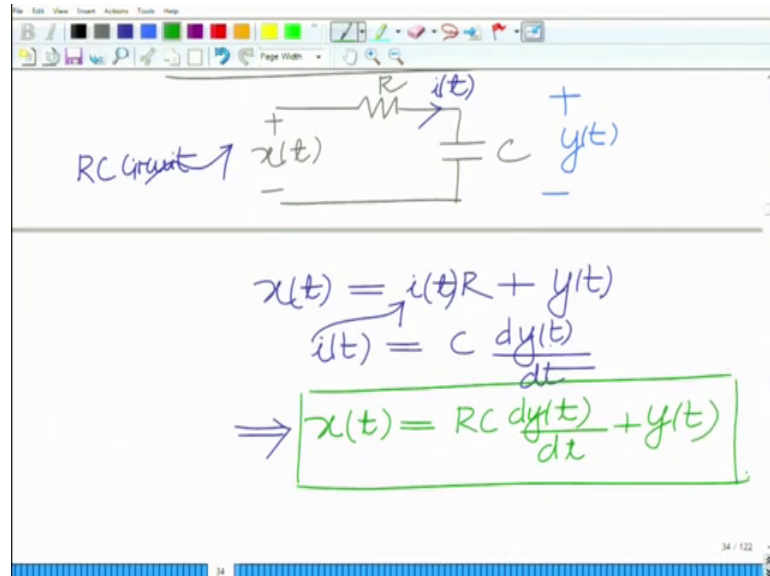 File Edit View Insert Actions Tools Help
B I
Page Width
R i(t)
+ +
RC Circuit x(t) C y(t)
− −
x(t) = i(t)R + y(t)
i(t) = C dy(t)/dt
⇒ x(t) = RC dy(t)/dt + y(t)
34 / 122
34